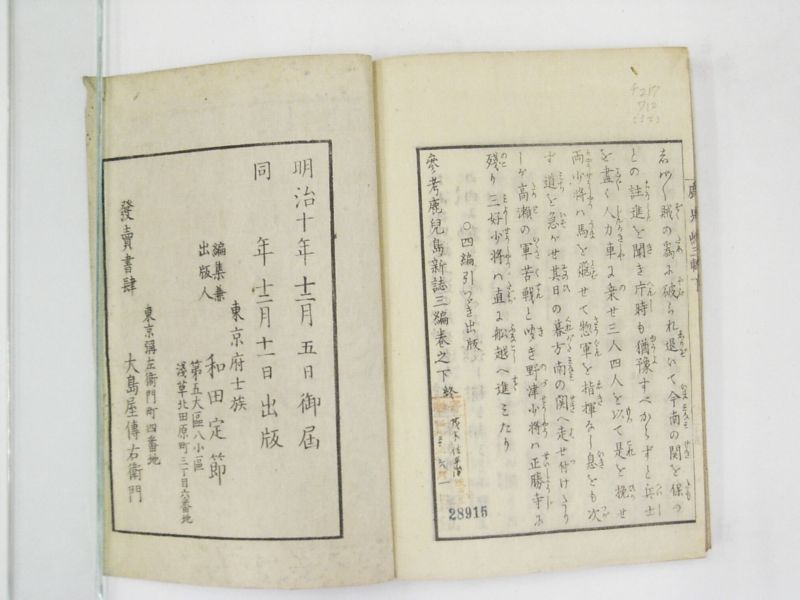 賊の為に破られ退いて今南の関を保つ
との註進を聞き片時も猶豫すべからずと兵士
を盡く人力車に乗せ三人四人を以て是を挽せ
両少将ハ馬を飛せて惣軍を指揮なし息をも次
ず道を急がせ其日の暮方南の関へ走せ付けたり
しが高瀬の軍苦戦と聞き野津少将ハ正勝寺に
残り三好少将ハ直に船越へ進みたり
○四編引つゞき出版
參考鹿兒島新誌三編巻之下終
28915
明治十年十二月五日御届
同年十二月十一日出版
編集兼
出版人
東京府士族
和田定節
第五大區八小區
淺草北田原町三丁目六番地
發賣書肆
東京彌左衛門町四番地
大島屋傳右衛門